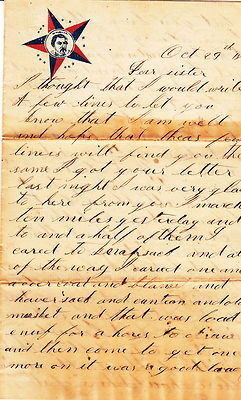 Oct 29th
Dear sister
I thought that I would write
A few lines to let you
know that I am well
and hope that theas few
lines will find you the
same I got your letter
last night I was very gla
to here from you I march
ten miles yesterday and
to and a half of them I
cared to knapsack and
of the way I caried one
overcoat and
haversack and cantean and
musket and that was load
enuf for a hors to draw
and then come to get one
more on it was a good load